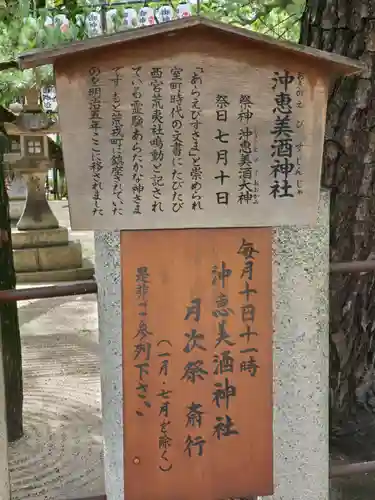 沖恵美酒神社
おきえびすじんじゃ
祭神 沖恵美酒大神
おきえびすおおかみ
祭日 七月十日
「あらえびすさま」と崇められ
室町時代の文書にたびたび
西宮荒夷社鳴動と記され
ている霊験あらたかな神さま
です もと荒戎町に鎮座されていた
のを明治五年ここに移されました
毎月十日十一時
沖恵美酒神社
月次祭 斎行
(一月・七月を除く)
是非ご参列下さい